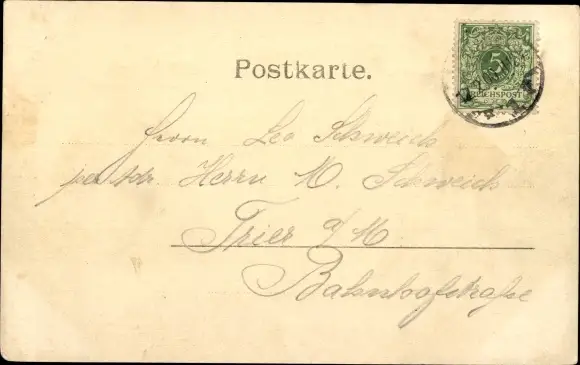 5
REICHSPOST
Postkarte.
Herrn Leo Schweich
per Adr. Herrn M. Schweich
Trier a/M
Bahnhofstraße